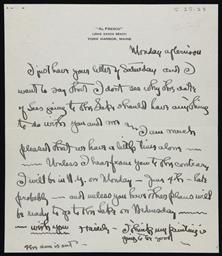 5-25-25
"AL FRESCO"
LONG SANDS BEACH
YORK HARBOR, MAINE
Monday afternoon
I just have your letter of Saturday and I
want to say that I don't see why this date
of Lees going to the Lake should have anything
to do with you and me — I am much
pleased that we have a little time alone —
Unless I hear from you to the contrary
I will be in N.Y. on Monday — June 4th - late
probably — and unless you have other plans will
be ready to go to the Lake on Wednesday —
with you
I think my painting is
going to be good